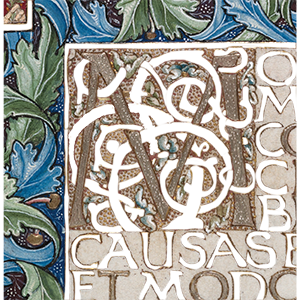 M O
M
CO
C
C
B
CAUSAS E
ET MODO